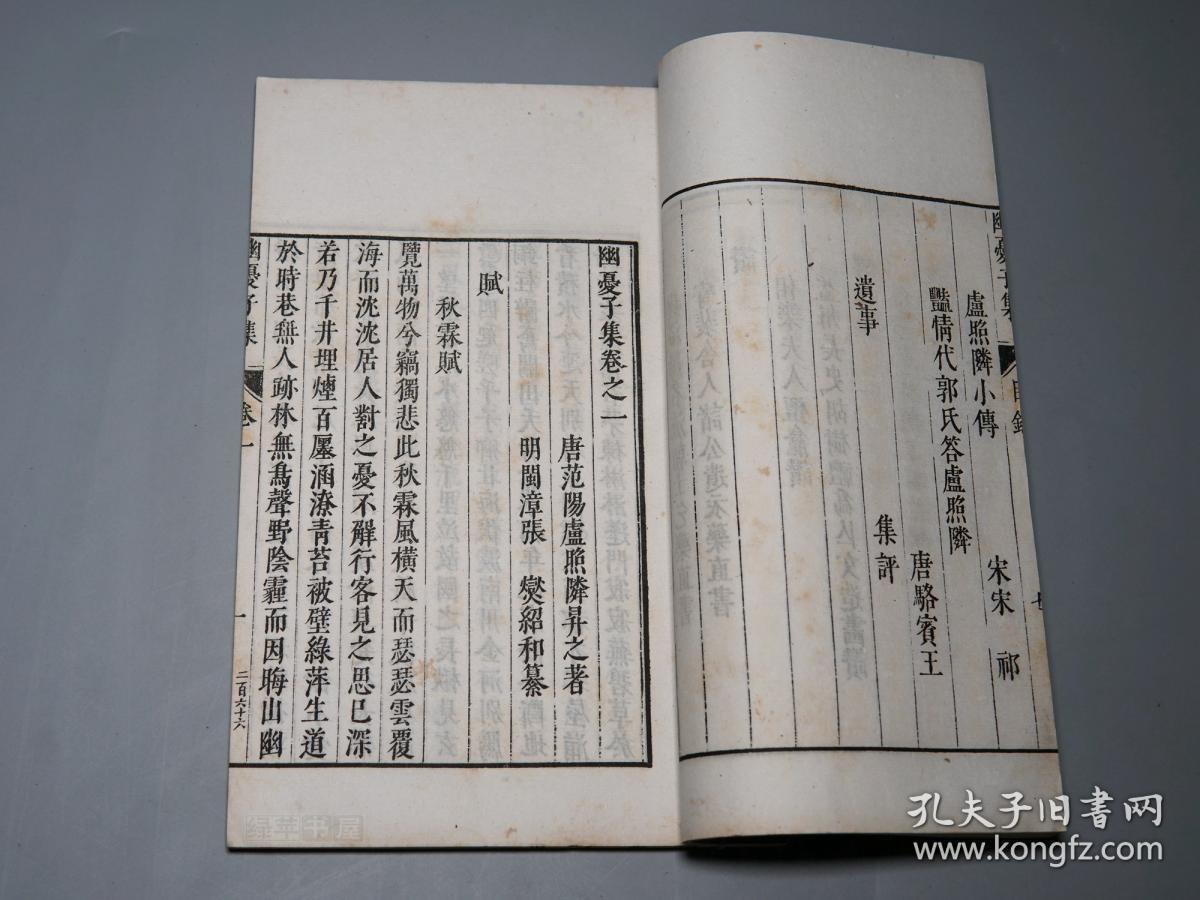 幽憂子集
目錄
盧照隣小傳 宋宋 祁
豔情代郭氏答盧照隣
唐駱賓王
集評
遺事
幽憂子集卷之一
唐范陽盧照隣昇之著
明閩漳張 燮紹和纂
賦
秋霖賦
覽萬物兮竊獨悲此秋霖風橫天而瑟瑟雲覆
海而沈沈居人對之憂不觧行客見之思已深
若乃千井埋煙百㕓涵潦靑苔被壁綠萍生道
於時巷無人跡林無鳥聲野陰霾而因晦山幽
幽憂子集
卷一
一
二百六十六
绿苹书屋
孔夫子旧书网
www.kongfz.com